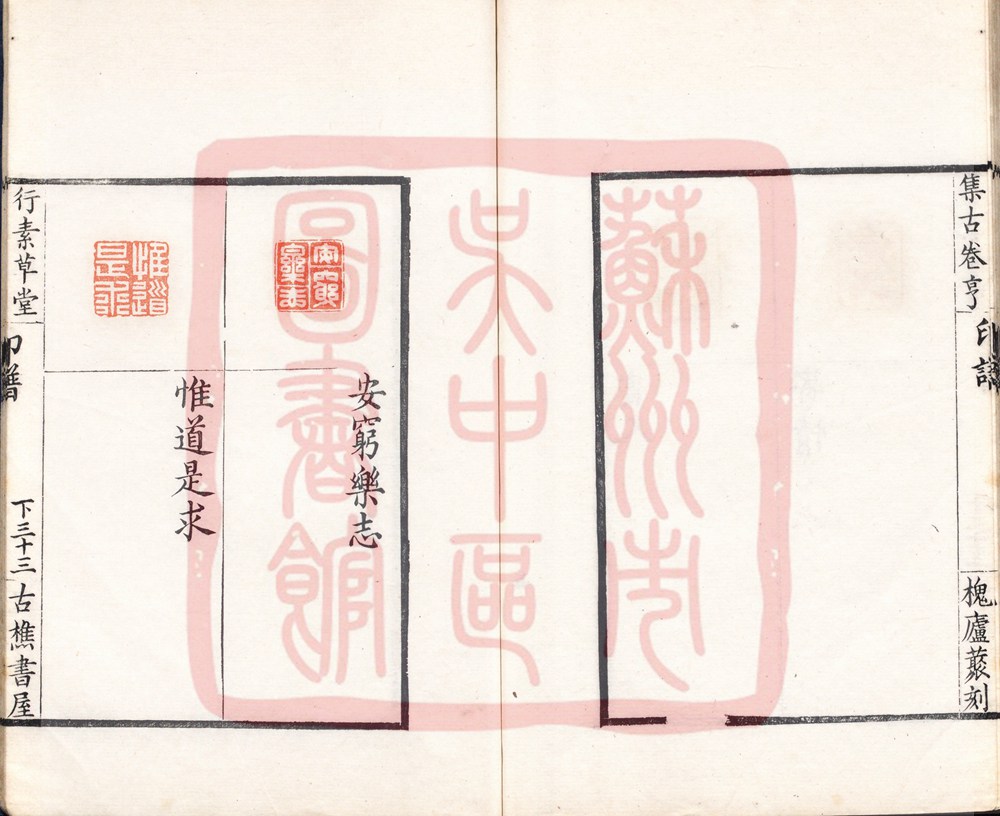 集古卷亨
印譜
槐廬叢刻
蘇州市
吳中區
圖書館
安窮樂志
安窮樂志
惟道是求
惟道是求
行素草堂
印譜
下三十三
古樵書屋